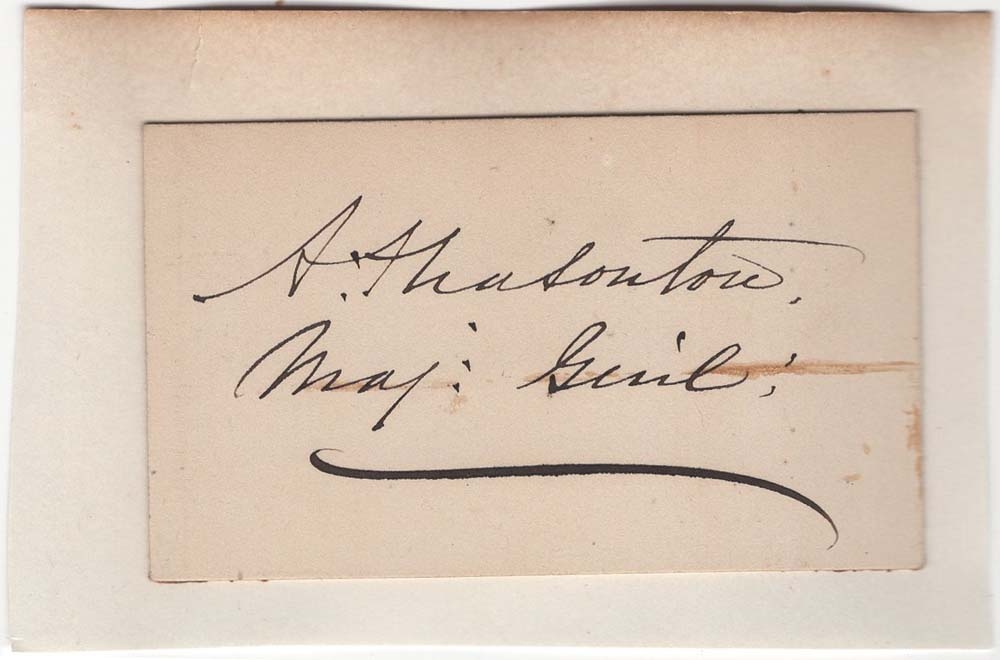 A. Pleasonton.
Maj: Genl: